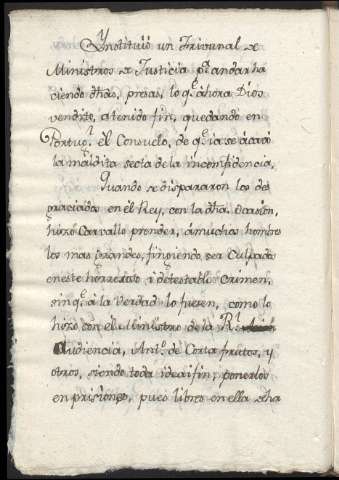 Ynstituiò un Tribunal de
Ministros de Justicia pª. andar ha
ciendo dhas, presas, lo qᵉ. ahora Dios
vendito, a tenido fin, quedando en
Portugˡ. el Consuelo, de qᵉ. ia se acavò
la maldita secta de la inconfidencia,
Quando se dispararon los des
graciados en el Rey, con la dha. ocasion,
hizo Carvallo prender, á muchos hombres
los mas grandes, fingiendo ser Culpados
en este horroroso i detestable Crimen,
sin qᵉ. à la verdad lo fuesen, como lo
hizo con el Ministro de la Rˡ.
Audiencia, Antº. de Corta frutos, y
otros, siendo toda idea i fin, ponerlos
en prisiones, pues libres en ella sha